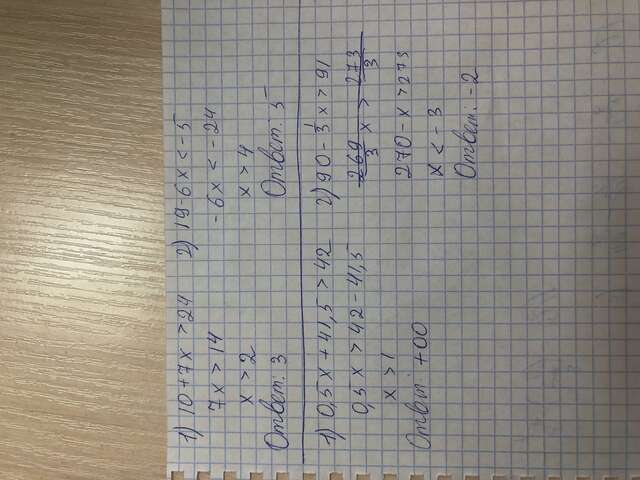 1) 10+7x >24
7x >14
x >2
Ответ: 3
2) 19-6x < -5
-6x < -24
x > 4
Ответ: 5
1) 0,5x + 41,5 > 42
0,5x > 42 - 41,5
x > 1
Ответ: +00
2) 90 - 1/3 x > 91
269/3 x > 273/3
270 - x > 273
x < -3
Ответ: -2